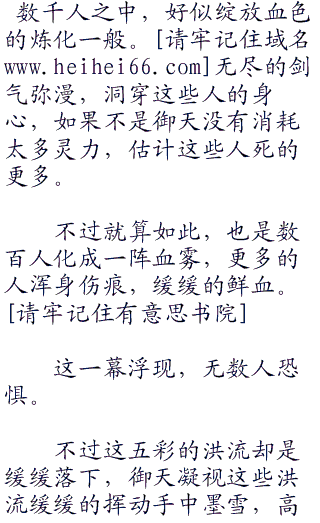 数千人之中，好似绽放血色
的炼化一般。[请牢记住域名
www.heihei66.com]无尽的剑
气弥漫，洞穿这些人的身
心，如果不是御天没有消耗
太多灵力，估计这些人死的
更多。
不过就算如此，也是数
百人化成一阵血雾，更多的
人浑身伤痕，缓缓的鲜血。
[请牢记住有意思书院]
这一幕浮现，无数人恐
惧。
不过这五彩的洪流却是
缓缓落下，御天凝视这些洪
流缓缓的挥动手中墨雪，高